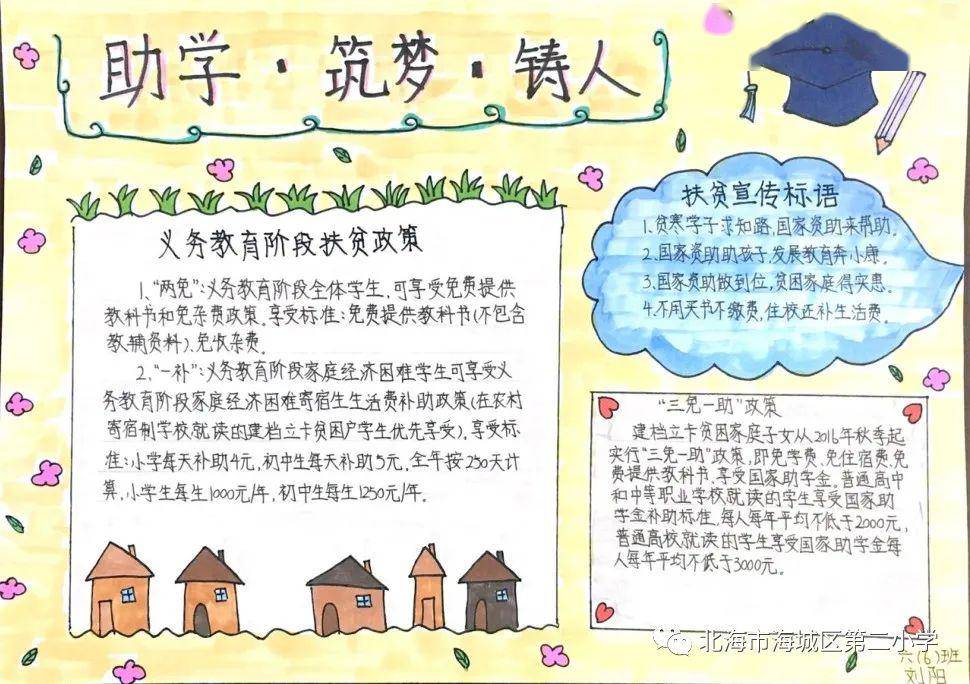 助学·筑梦·铸人
义务教育阶段扶贫政策
1、“两免”:义务教育阶段全体学生,可享受免费提供
教科书和免杂费政策。享受标准:免费提供教科书(不包含
教辅资料)、免收杂费。
2、“一补”:义务教育阶段家庭经济困难学生可享受义
务教育阶段家庭经济困难寄宿生生活费补助政策(在农村
寄宿制学校就读的建档立卡贫困户学生优先享受)。享受标
准:小学每天补助4元,初中生每天补助5元,全年按250天计
算,小学生每生1000元/年,初中生每生1250元/年。
扶贫宣传标语
1.贫寒学子求知路,国家资助来帮助。
2.国家资助助孩子,发展教育奔小康。
3.国家资助做到位,贫困家庭得实惠。
4.不用买书不缴费,住校还补生活费。
“三免一助”政策
建档立卡贫困家庭子女从2016年秋季起
实行“三免一助”政策,即免学费、免住宿费、免
费提供教科书、享受国家助学金。普通高中
和中等职业学校就读的学生享受国家助
学金补助标准,每人每年平均不低于2000元,
普通高校就读的学生享受国家助学金每
人每年平均不低于3000元。
北海市海城区第二小学
六(6)班
刘阳